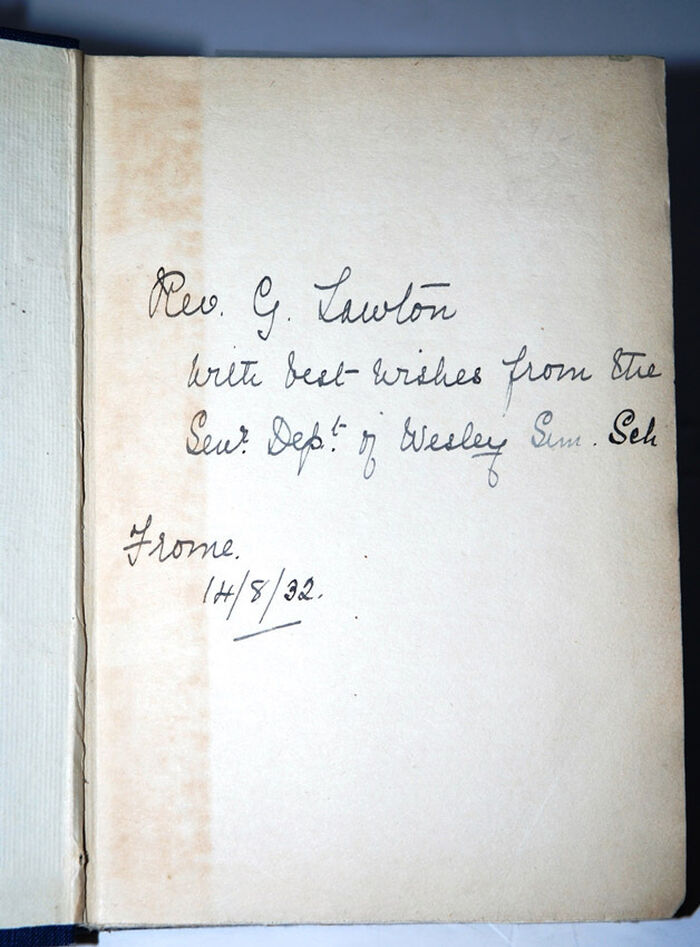 Rev. G. Lawton
with best wishes from the
Senr. Dept. of Wesley Sun. Sch
Frome.
14/8/32.